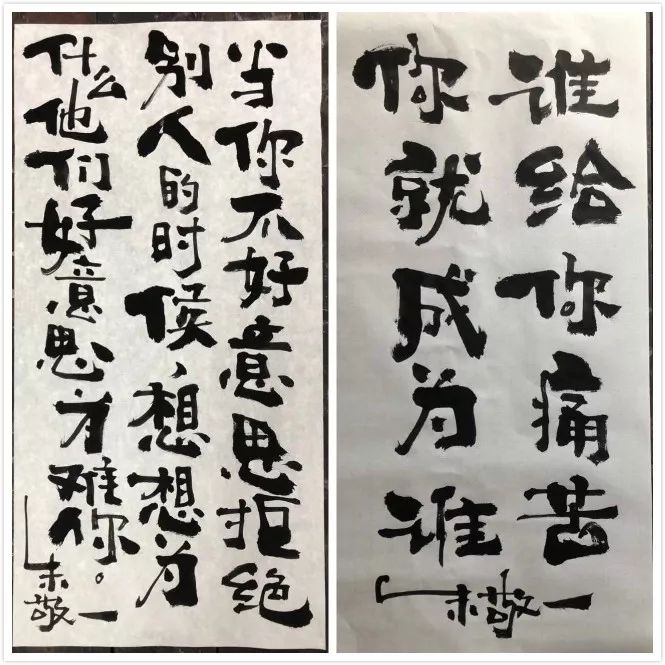 当你不好意思拒绝
别人的时候，想想为
什么他们好意思为难你。
朱敬一
谁给你痛苦
你就成为谁
朱敬一